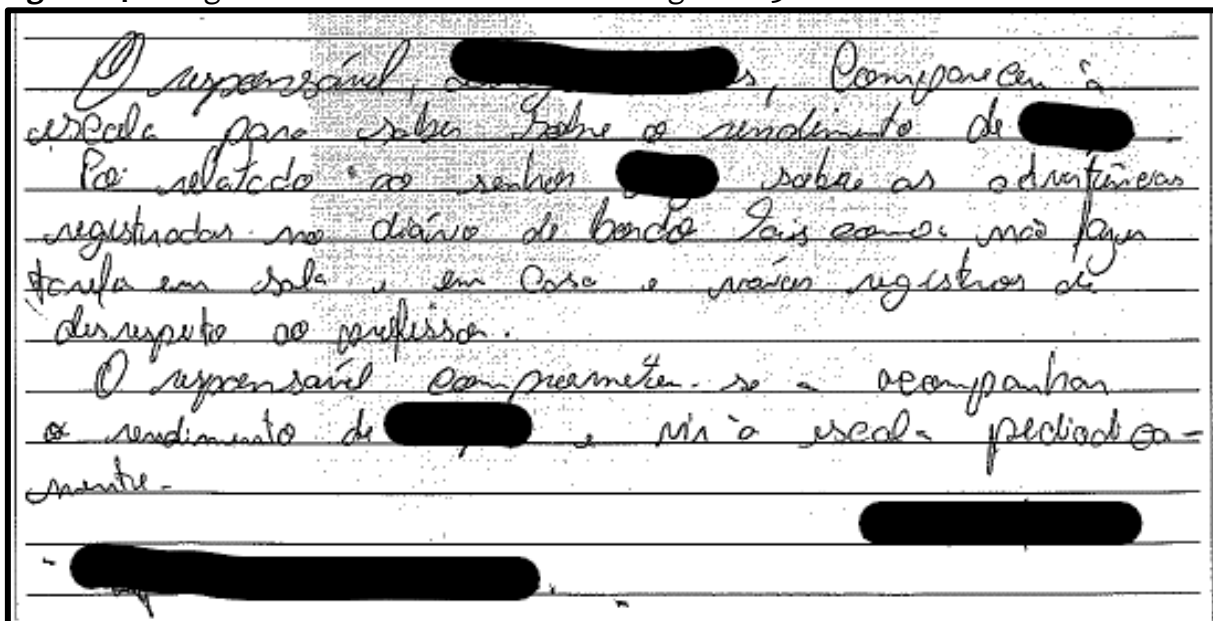 O responsável, s, Compareceu à
escola para saber sobre o rendimento de .
Foi relatado ao senhor sobre as advertências
registradas no diário de bordo tais como: não fazer
tarefa em sala e em casa e vários registros de
desrespeito ao professor.
O responsável comprometeu-se a acompanhar
o rendimento de e vir à escola pediodica-
mente.